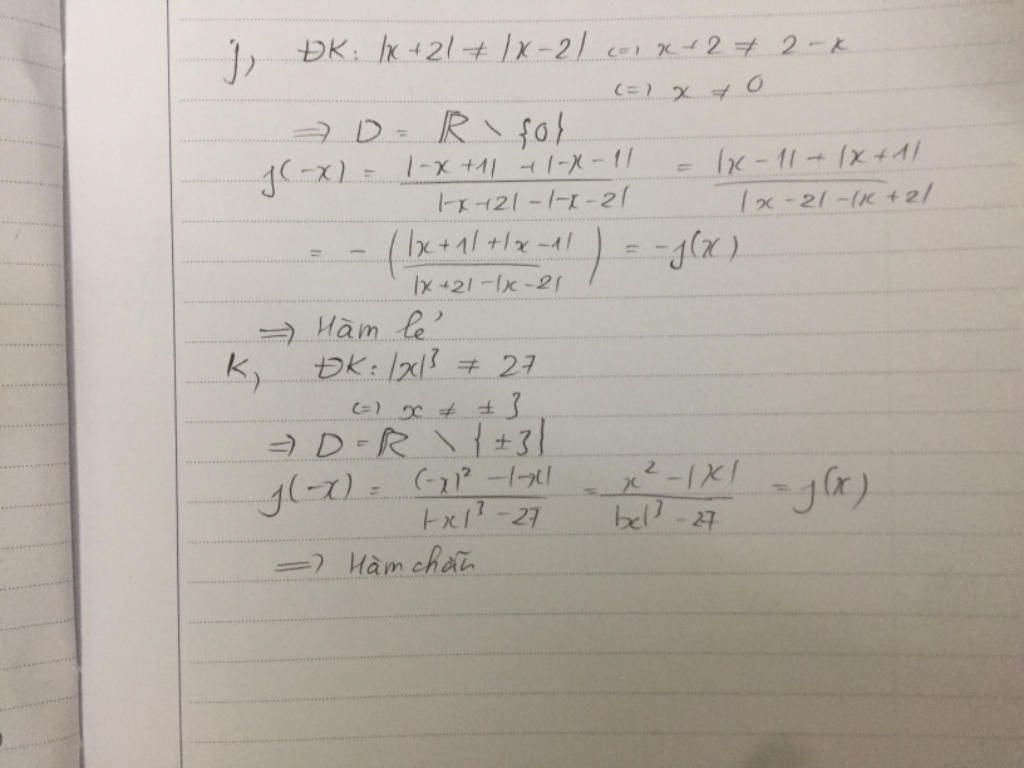 j, ĐK: |x+2| ≠ |x-2| <=> x+2 ≠ 2-x
<=> x ≠ 0
=> D = ℝ \ {0}
f(-x) = (|-x+1| + |-x-1|)/(|-x+2| - |-x-2|) = (|x-1| + |x+1|)/(|x-2| - |x+2|)
= - ((|x+1| + |x-1|)/(|x+2| - |x-2|)) = -f(x)
=> Hàm lẻ
K, ĐK: |x|³ ≠ 27
<=> x ≠ ±3
=> D = ℝ \ {±3}
f(-x) = ((-x)² - |-x|)/(|-x|³ - 27) = (x² - |x|)/(|x|³ - 27) = f(x)
=> Hàm chẵn